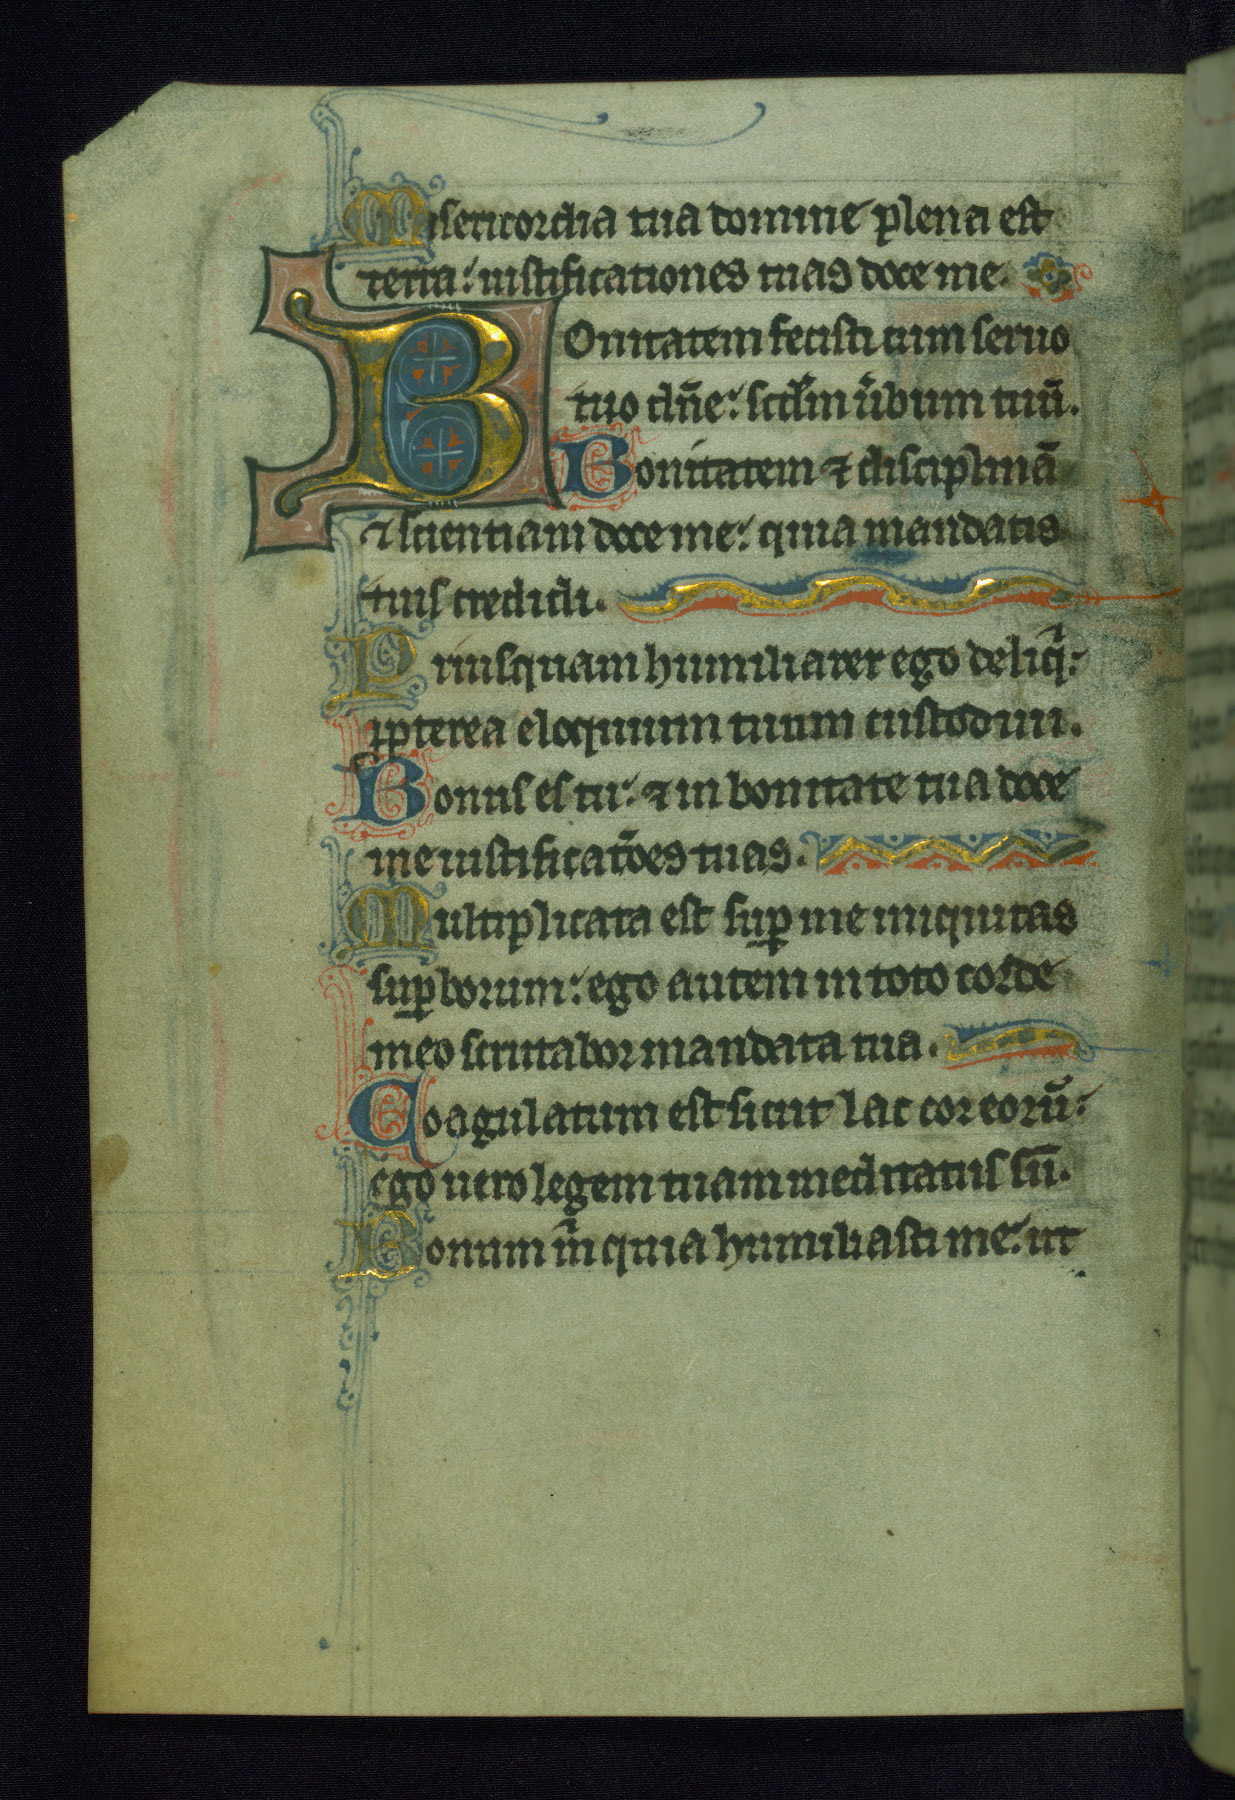 Misericordia tua domine plena est
terra: iustificationes tuas doce me.
BOnitatem fecisti cum seruo
tuo dn̄e: scd̄m u̾bum tuū.
Bonitatem ⁊ disciplinā
⁊ scientiam doce me: quia mandatis
tuis credidi.
Priusquam humiliarer ego deliq̾:
ꝓpterea eloquium tuum custodiui.
Bonus es tu: ⁊ in bonitate tua doce
me iustificatōes tuas.
Multiplicata est suꝑ me iniquitas
suꝑborum: ego autem in toto corde
meo scrutabor mandata tua.
Coagulatum est sicut lac cor eorū:
ego uero legem tuam meditatus sū.
Bonum mͥ quia humiliasti me: ut